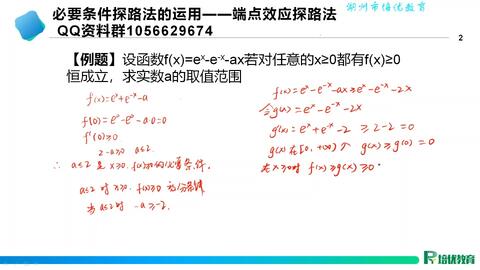 必要条件探路法的运用——端点效应探路法
湖州市培优教育
QQ资料群1056629674
2
【例题】设函数f(x)=eˣ-e⁻ˣ-ax若对任意的x≥0都有f(x)≥0
恒成立，求实数a的取值范围
f'(x)=eˣ+e⁻ˣ-a
f(0)=e⁰-e⁰-a·0=0
f'(0)≥0
2-a≥0 a≤2
∴ a≤2 是 x≥0, f(x)≥0的必要条件.
a≤2 时 x≥0. f(x)≥0 充分条件
当 a≤2 时 -a≥-2.
f(x)=eˣ-e⁻ˣ-ax≥eˣ-e⁻ˣ-2x
令g(x)=eˣ-e⁻ˣ-2x
g'(x)=eˣ+e⁻ˣ-2 ≥2-2=0
g(x)在[0,+∞)↑ g(x)≥g(0)=0
在x≥0时 f(x)≥g(x)≥0.
培优教育